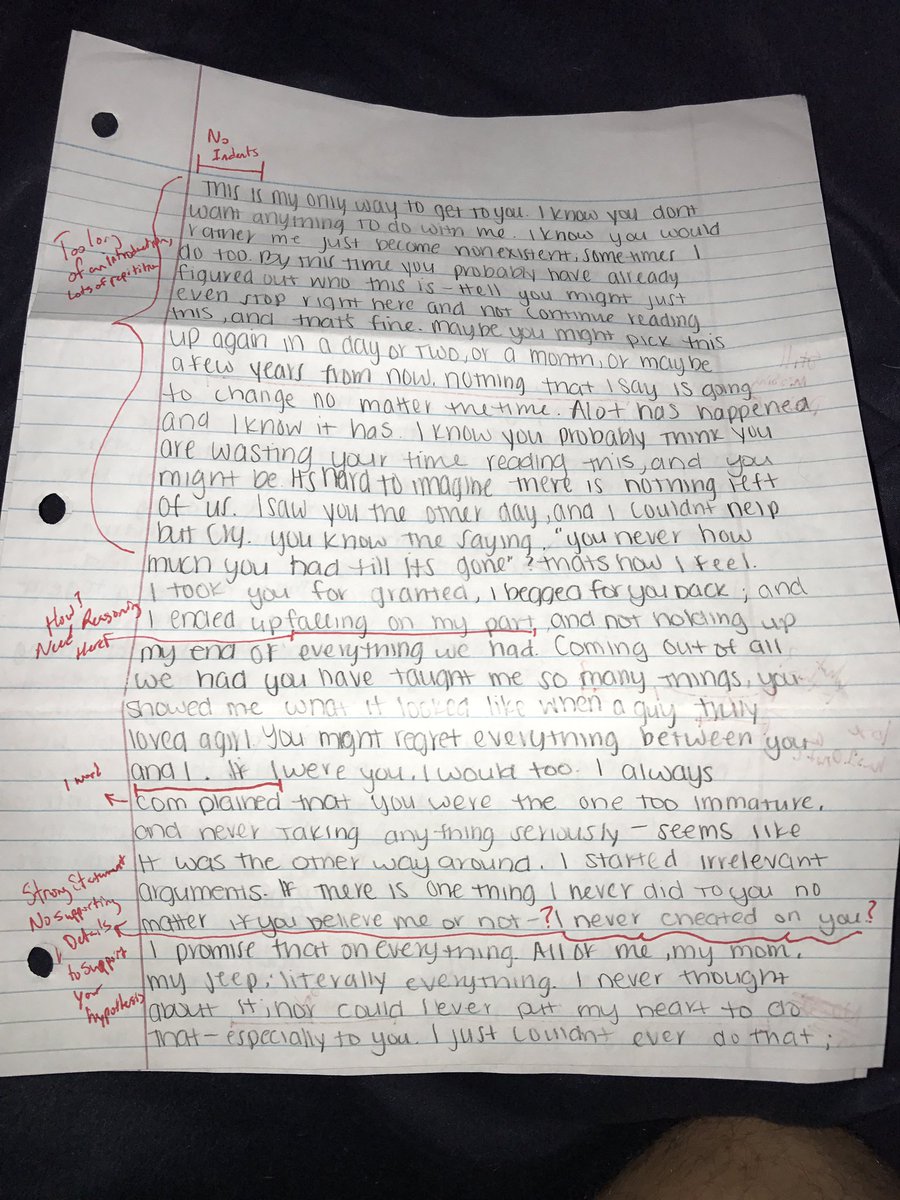 No
Indents
This is my only way to get to you. I know you dont
want anything to do with me. I know you would
rather me just become nonexistent, sometimes I
do too. By this time you probably have already
figured out who this is - Hell you might just
even stop right here and not continue reading
this, and that's fine. maybe you might pick this
up again in a day or two, or a month, or maybe
a few years from now. nothing that I say is going
to change no matter the time. Alot has happened,
and I know it has. I know you probably think you
are wasting your time reading this, and you
might be. It's hard to imagine there is nothing left
of us. I saw you the other day, and I couldnt help
but cry. you know the saying, "you never how
much you had till its gone"? thats how I feel.
I took you for granted, I begged for you back; and
I ended up falling on my part, and not holding up
my end of everything we had. Coming out of all
we had you have taught me so many things, you
showed me what it looked like when a guy truly
loved a girl. You might regret everything between you
and I. If I were you, I would too. I always
complained that you were the one too immature,
and never taking anything seriously - seems like
it was the other way around. I started irrelevant
arguments. If there is one thing I never did to you no
matter if you believe me or not-? I never cheated on you?
I promise that on everything. All of me, my mom,
my jeep; literally everything. I never thought
about it; nor could I ever put my heart to do
that - especially to you. I just couldnt ever do that;
Too long
of an Introduction,
Lots of repitition
How?
Need Reasoning
Here
1 word
Strong Statement
No Supporting
Details
to Support
your
hypothesis